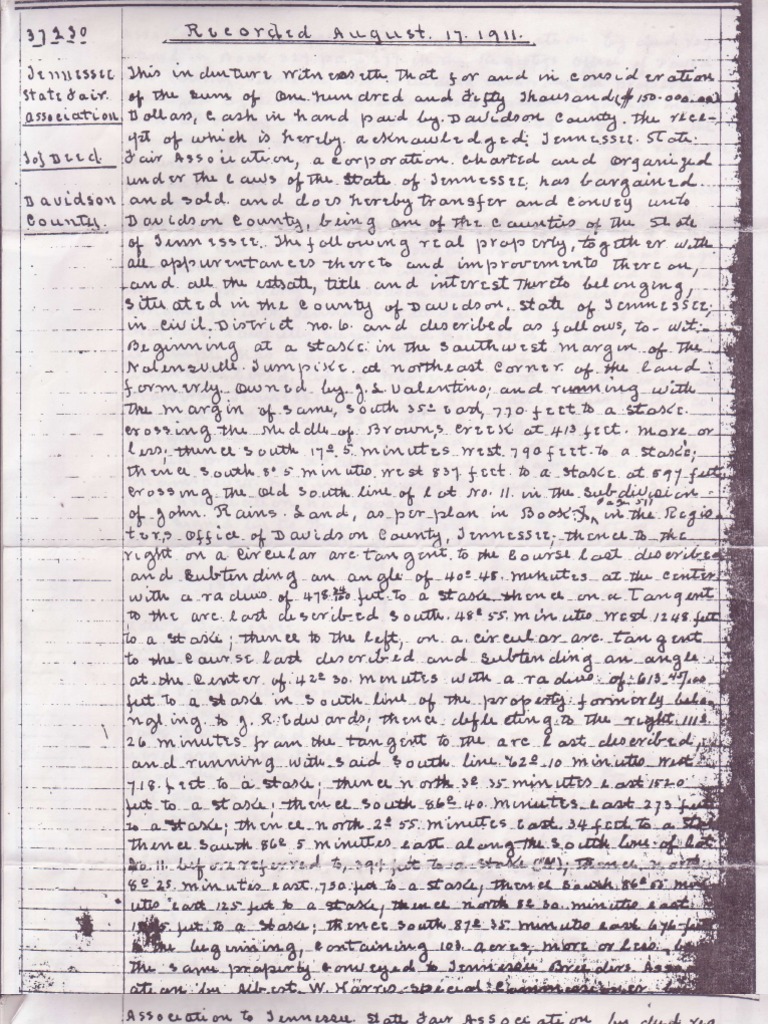 37230
Recorded August. 17. 1911.
Tennessee
State Fair
Association
To) Deed
Davidson
County.
This indenture witnesseth, That for and in consideration
of the sum of One hundred and Fifty Thousand ($150.000.00)
Dollars, Cash in hand paid by Davidson County. the rece-
ipt of which is hereby acknowledged; Tennessee State
Fair Association, a corporation charted and organized
under the Laws of the State of Tennessee; has bargained
and sold and does hereby transfer and convey unto
Davidson County, being one of the Counties of the State
of Tennessee. The following real property, together with
all appurentances thereto and improvements thereon,
and all the estsate, title and interest thereto belonging,
situated in the County of Davidson, State of Tennessee;
in Civil District no. 6. and described as follows, to-wit:
Beginning at a stake in the Southwest margin of the
Nolensville Turnpike at northeast corner of the land
formerly owned by J. L. Valentino; and running with
the margin of same, South 35º east, 770 feet to a stake
crossing the middle of Browns Creek at 413 feet more or
less; thence South 17º 5 minutes west 790 feet to a stake;
thence South 8º 5 minutes west 837 feet to a stake at 597 feet
crossing the old South line of lot No. 11. in the Subdivision
of John Rains Land, as per plan in Book in the Regis-
ters Office of Davidson County, Tennessee; thence to the
right on a circular arc tangent to the course last describe
and subtending an angle of 40º 48. minutes at the center
with a radius of 478 feet to a stake thence on a Tangent
to the arc last described South 48º 55 minutes west 1248 feet
to a stake; thence to the left, on a circular arc tangent
to the course last described and subtending an angle
at the center of 42º 30. minutes with a radius of 613
feet to a stake in South line of the property formerly belo
ngling to J. R. Edwards; thence deflecting to the right 111º
26 minutes from the tangent to the arc last described,
and running with said South line 62º 10 minutes west
718 feet to a stake; thence north 3º 35 minutes east 1520
feet to a stake; thence South 86º 40. minutes east 273 feet
to a stake; thence north 2º 55 minutes east 34 feet to a sta
thence South 86º 5 minutes east along the South line of lot
No. 11. before referred to, 391 feet to a stake; thence north
8º 25 minutes east 730 feet to a stake, thence South 86º 55 min
utes east 125 feet to a stake, thence north 8º 30. minutes east
feet to a stake; thence South 87º 35 minutes east 676 feet
to the beginning, containing 103 acres, more or less, be
the same property conveyed to Tennessee Breeders Asso
ation by Albert. W. Harris Special Commissioner
Association to Tennessee State Fair Association by deed reg